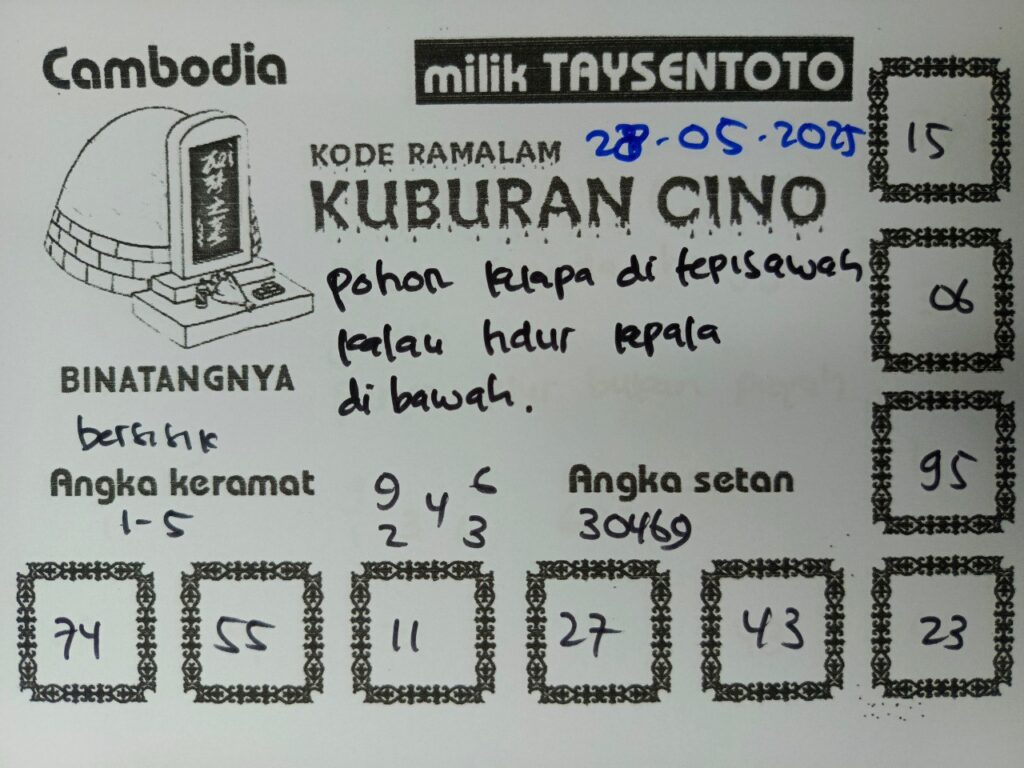 Cambodia
milik TAYSENTOTO
KODE RAMALAM
28-05-2025
KUBURAN CINO
pohon kelapa di tepisawah
kalau tidur kepala
di bawah.
BINATANGNYA
bersisik
Angka keramat
1-5
9 6
4
2 3
Angka setan
30469
15
06
95
74 55 11 27 43 23